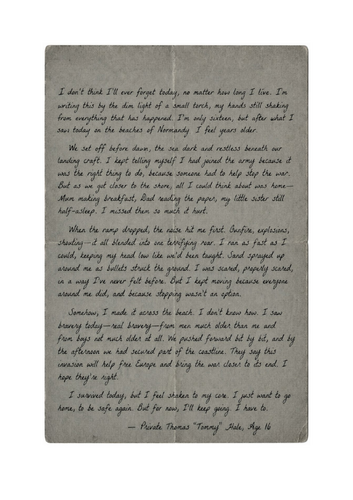 I don't think I'll ever forget today, no matter how long I live. I'm
writing this by the dim light of a small torch, my hands still shaking
from everything that has happened. I'm only sixteen, but after what I
saw today on the beaches of Normandy I feel years older.
We set off before dawn, the sea dark and restless beneath our
landing craft. I kept telling myself I had joined the army because it
was the right thing to do, because someone had to help stop the war.
But as we got closer to the shore, all I could think about was home—
Mum making breakfast, Dad reading the paper, my little sister still
half-asleep. I missed them so much it hurt.
When the ramp dropped, the noise hit me first. Gunfire, explosions,
shouting—it all blended into one terrifying roar. I ran as fast as I
could, keeping my head low like we'd been taught. Sand sprayed up
around me as bullets struck the ground. I was scared, properly scared,
in a way I've never felt before. But I kept moving because everyone
around me did, and because stopping wasn't an option.
Somehow, I made it across the beach. I don't know how. I saw
bravery today—real bravery—from men much older than me and
from boys not much older at all. We pushed forward bit by bit, and by
the afternoon we had secured part of the coastline. They say this
invasion will help free Europe and bring the war closer to its end. I
hope they're right.
I survived today, but I feel shaken to my core. I just want to go
home, to be safe again. But for now, I'll keep going. I have to.
— Private Thomas "Tommy" Hale, Age 16